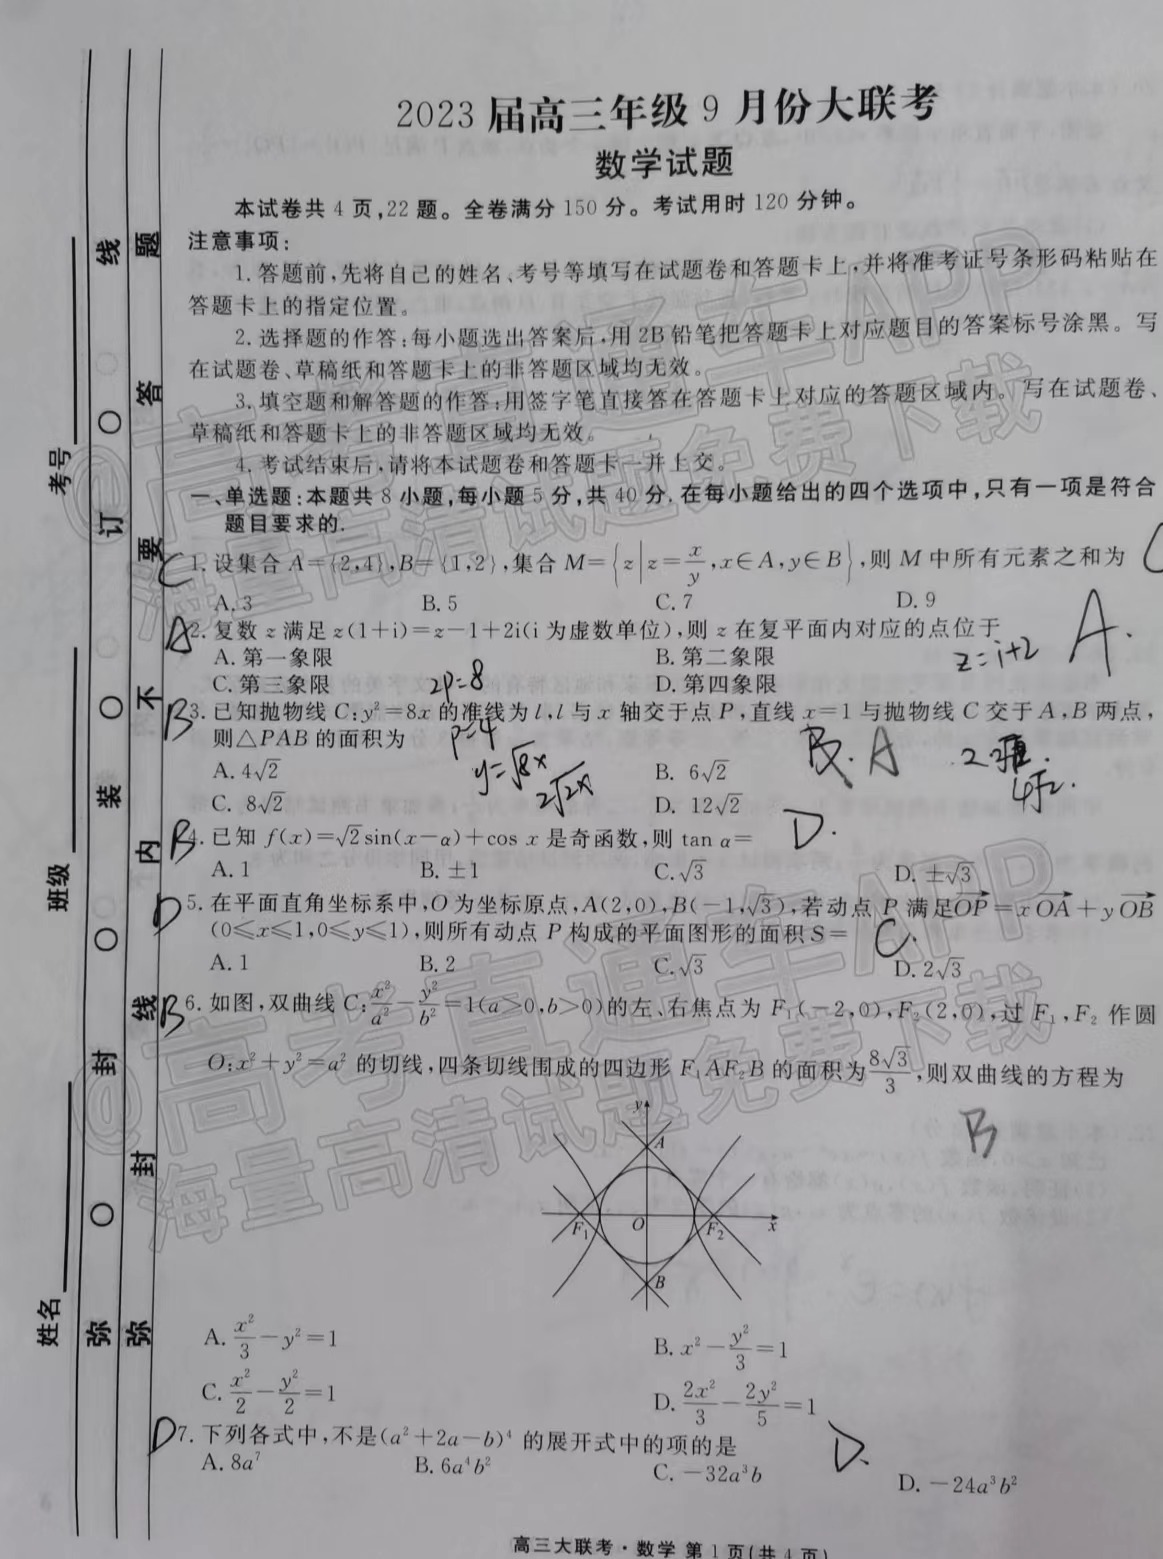 2023届高三年级9月份大联考
数学试题
本试卷共4页,22题。全卷满分150分。考试用时120分钟。
注意事项:
1.答题前,先将自己的姓名、考号等填写在试题卷和答题卡上,并将准考证号条形码粘贴在
答题卡上的指定位置。
2.选择题的作答:每小题选出答案后,用2B铅笔把答题卡上对应题目的答案标号涂黑。写
在试题卷、草稿纸和答题卡上的非答题区域均无效。
3.填空题和解答题的作答:用签字笔直接答在答题卡上对应的答题区域内。写在试题卷、
草稿纸和答题卡上的非答题区域均无效。
4.考试结束后,请将本试题卷和答题卡一并上交。
一、单选题:本题共8小题,每小题5分,共40分.在每小题给出的四个选项中,只有一项是符合
题目要求的.
C 1.设集合A={2,4},B={1,2},集合M={z|z=x/y,x∈A,y∈B},则M中所有元素之和为 C
A.3 B.5 C.7 D.9
A 2.复数z满足z(1+i)=z-1+2i(i为虚数单位),则z在复平面内对应的点位于
A.第一象限 B.第二象限 z=i+2 A.
C.第三象限 2p=8 D.第四象限
B 3.已知抛物线C:y²=8x的准线为l,l与x轴交于点P,直线x=1与抛物线C交于A,B两点,
则△PAB的面积为 p=4 B. A
A.4√2 y=√8x B. 6√2 4√2.
C. 8√2 2√2x D. 12√2
B 4.已知f(x)=√2sin(x-α)+cos x是奇函数,则tan α= D.
A.1 B.±1 C.√3 D.±√3
D 5.在平面直角坐标系中,O为坐标原点,A(2,0),B(-1,√3),若动点P满足OP=xOA+yOB
(0≤x≤1,0≤y≤1),则所有动点P构成的平面图形的面积S= C.
A.1 B.2 C.√3 D.2√3
B 6.如图,双曲线C:x²/a²-y²/b²=1(a>0,b>0)的左、右焦点为F₁(-2,0),F₂(2,0),过F₁,F₂作圆
O:x²+y²=a²的切线,四条切线围成的四边形F₁AF₂B的面积为8√3/3,则双曲线的方程为
B
y
A
F₁ O F₂ x
B
A. x²/3-y²=1 B. x²-y²/3=1
C. x²/2-y²/2=1 D. 2x²/3-2y²/5=1
D 7.下列各式中,不是(a²+2a-b)⁴的展开式中的项的是 D.
A.8a⁷ B.6a⁴b² C.-32a³b D.-24a³b²
高三大联考·数学 第1页(共4页)
姓名 班级 考号
弥 封 装 订 线
弥 封 线 内 不 要 答 题
@高考直通车APP
海量高清试题免费下载
@高考直通车APP
海量高清试题免费下载